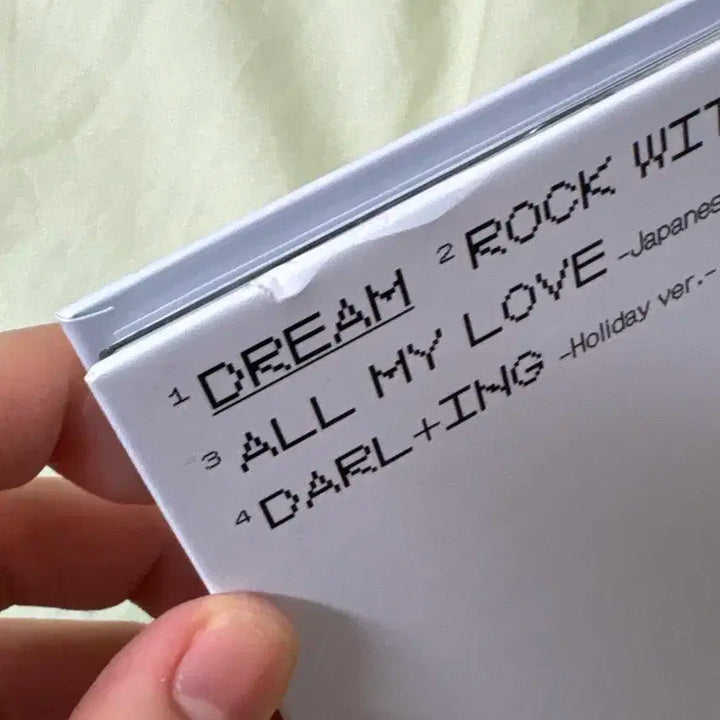 1 DREAM 2 ROCK
3 ALL MY LOVE -Japanes
4 DARL+ING -Holiday ver.-